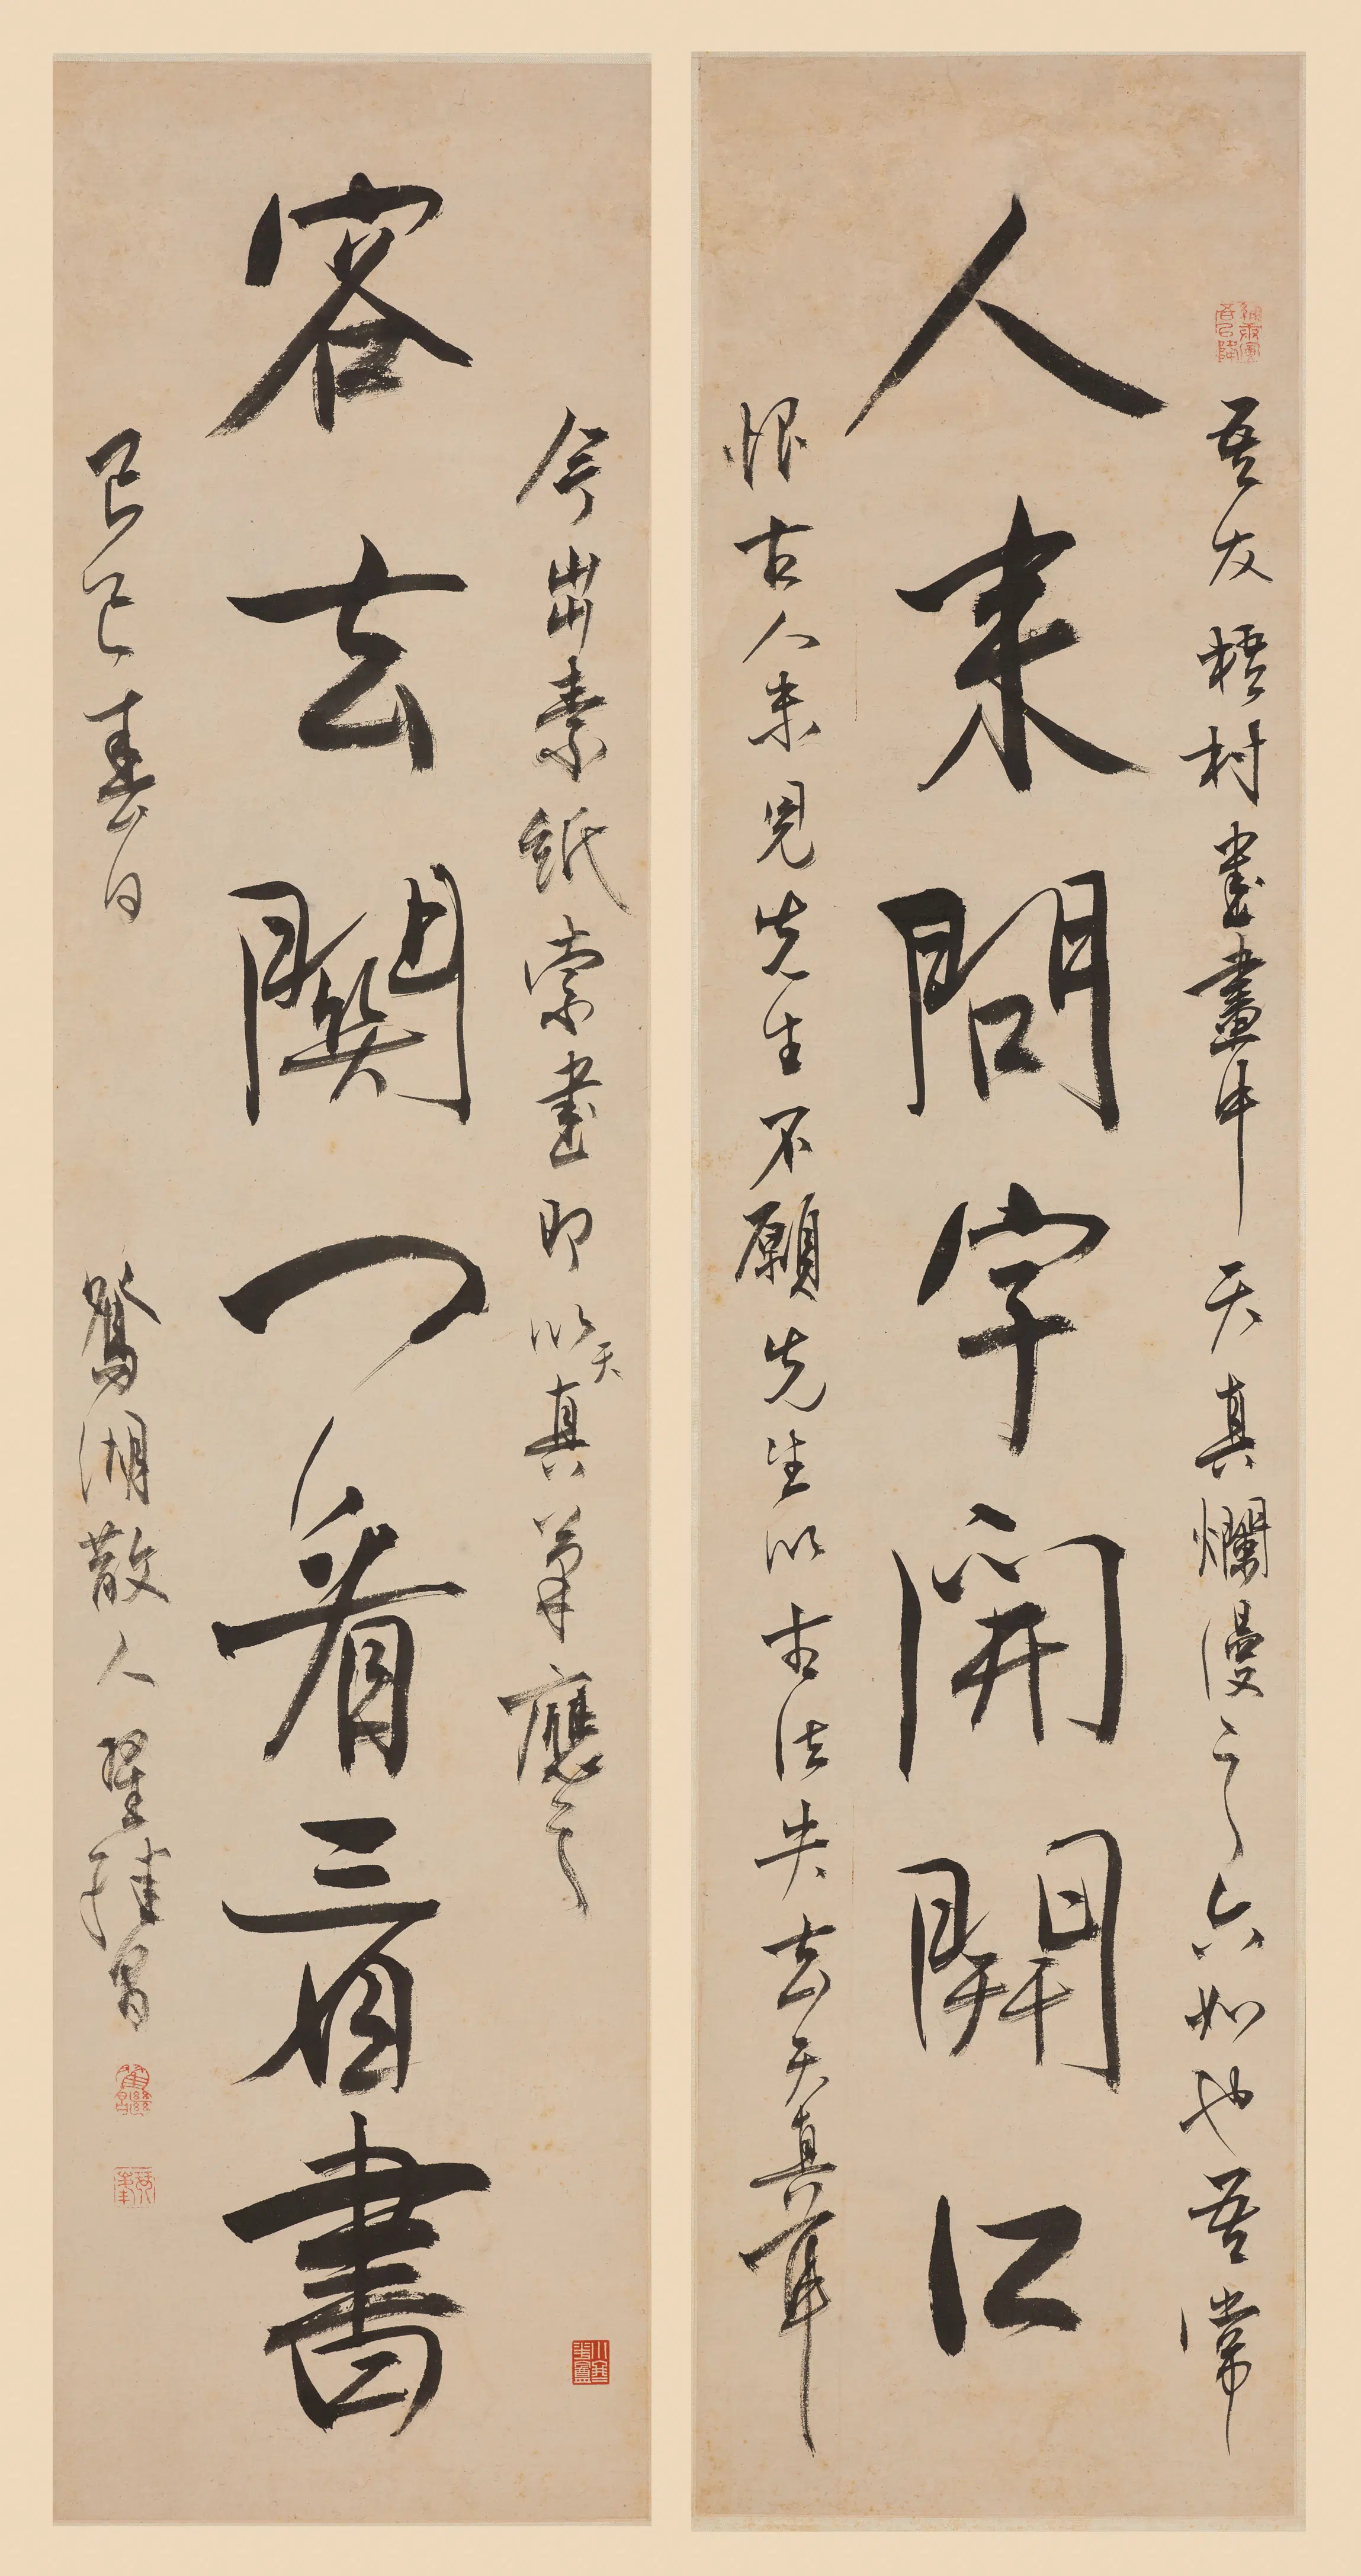 人來問字開開口
吾友梧村書畫中天真爛漫之六如也吾常
恨古人未見先生不願先生以古法失去天真耳
客去關門看看書
今出素紙索書即以天真筆應之
己巳春日 鴛湖散人翟繼昌